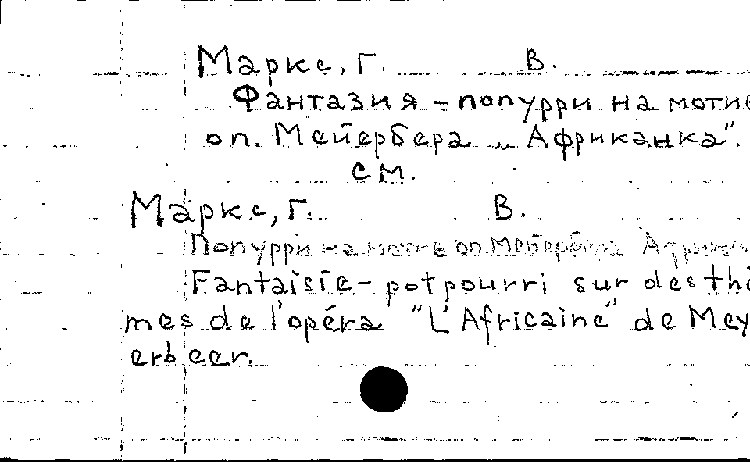 Маркс, Г. В.
Фантазия – попурри на мотив
оп. Мейербера „Африканка".
см.
Маркс, Г. В.
Попурри на мотив оп. Мейербера Африкан
Fantaisie – potpourri sur des thè
mes de l'opéra "L'Africaine" de Mey
erbeer.